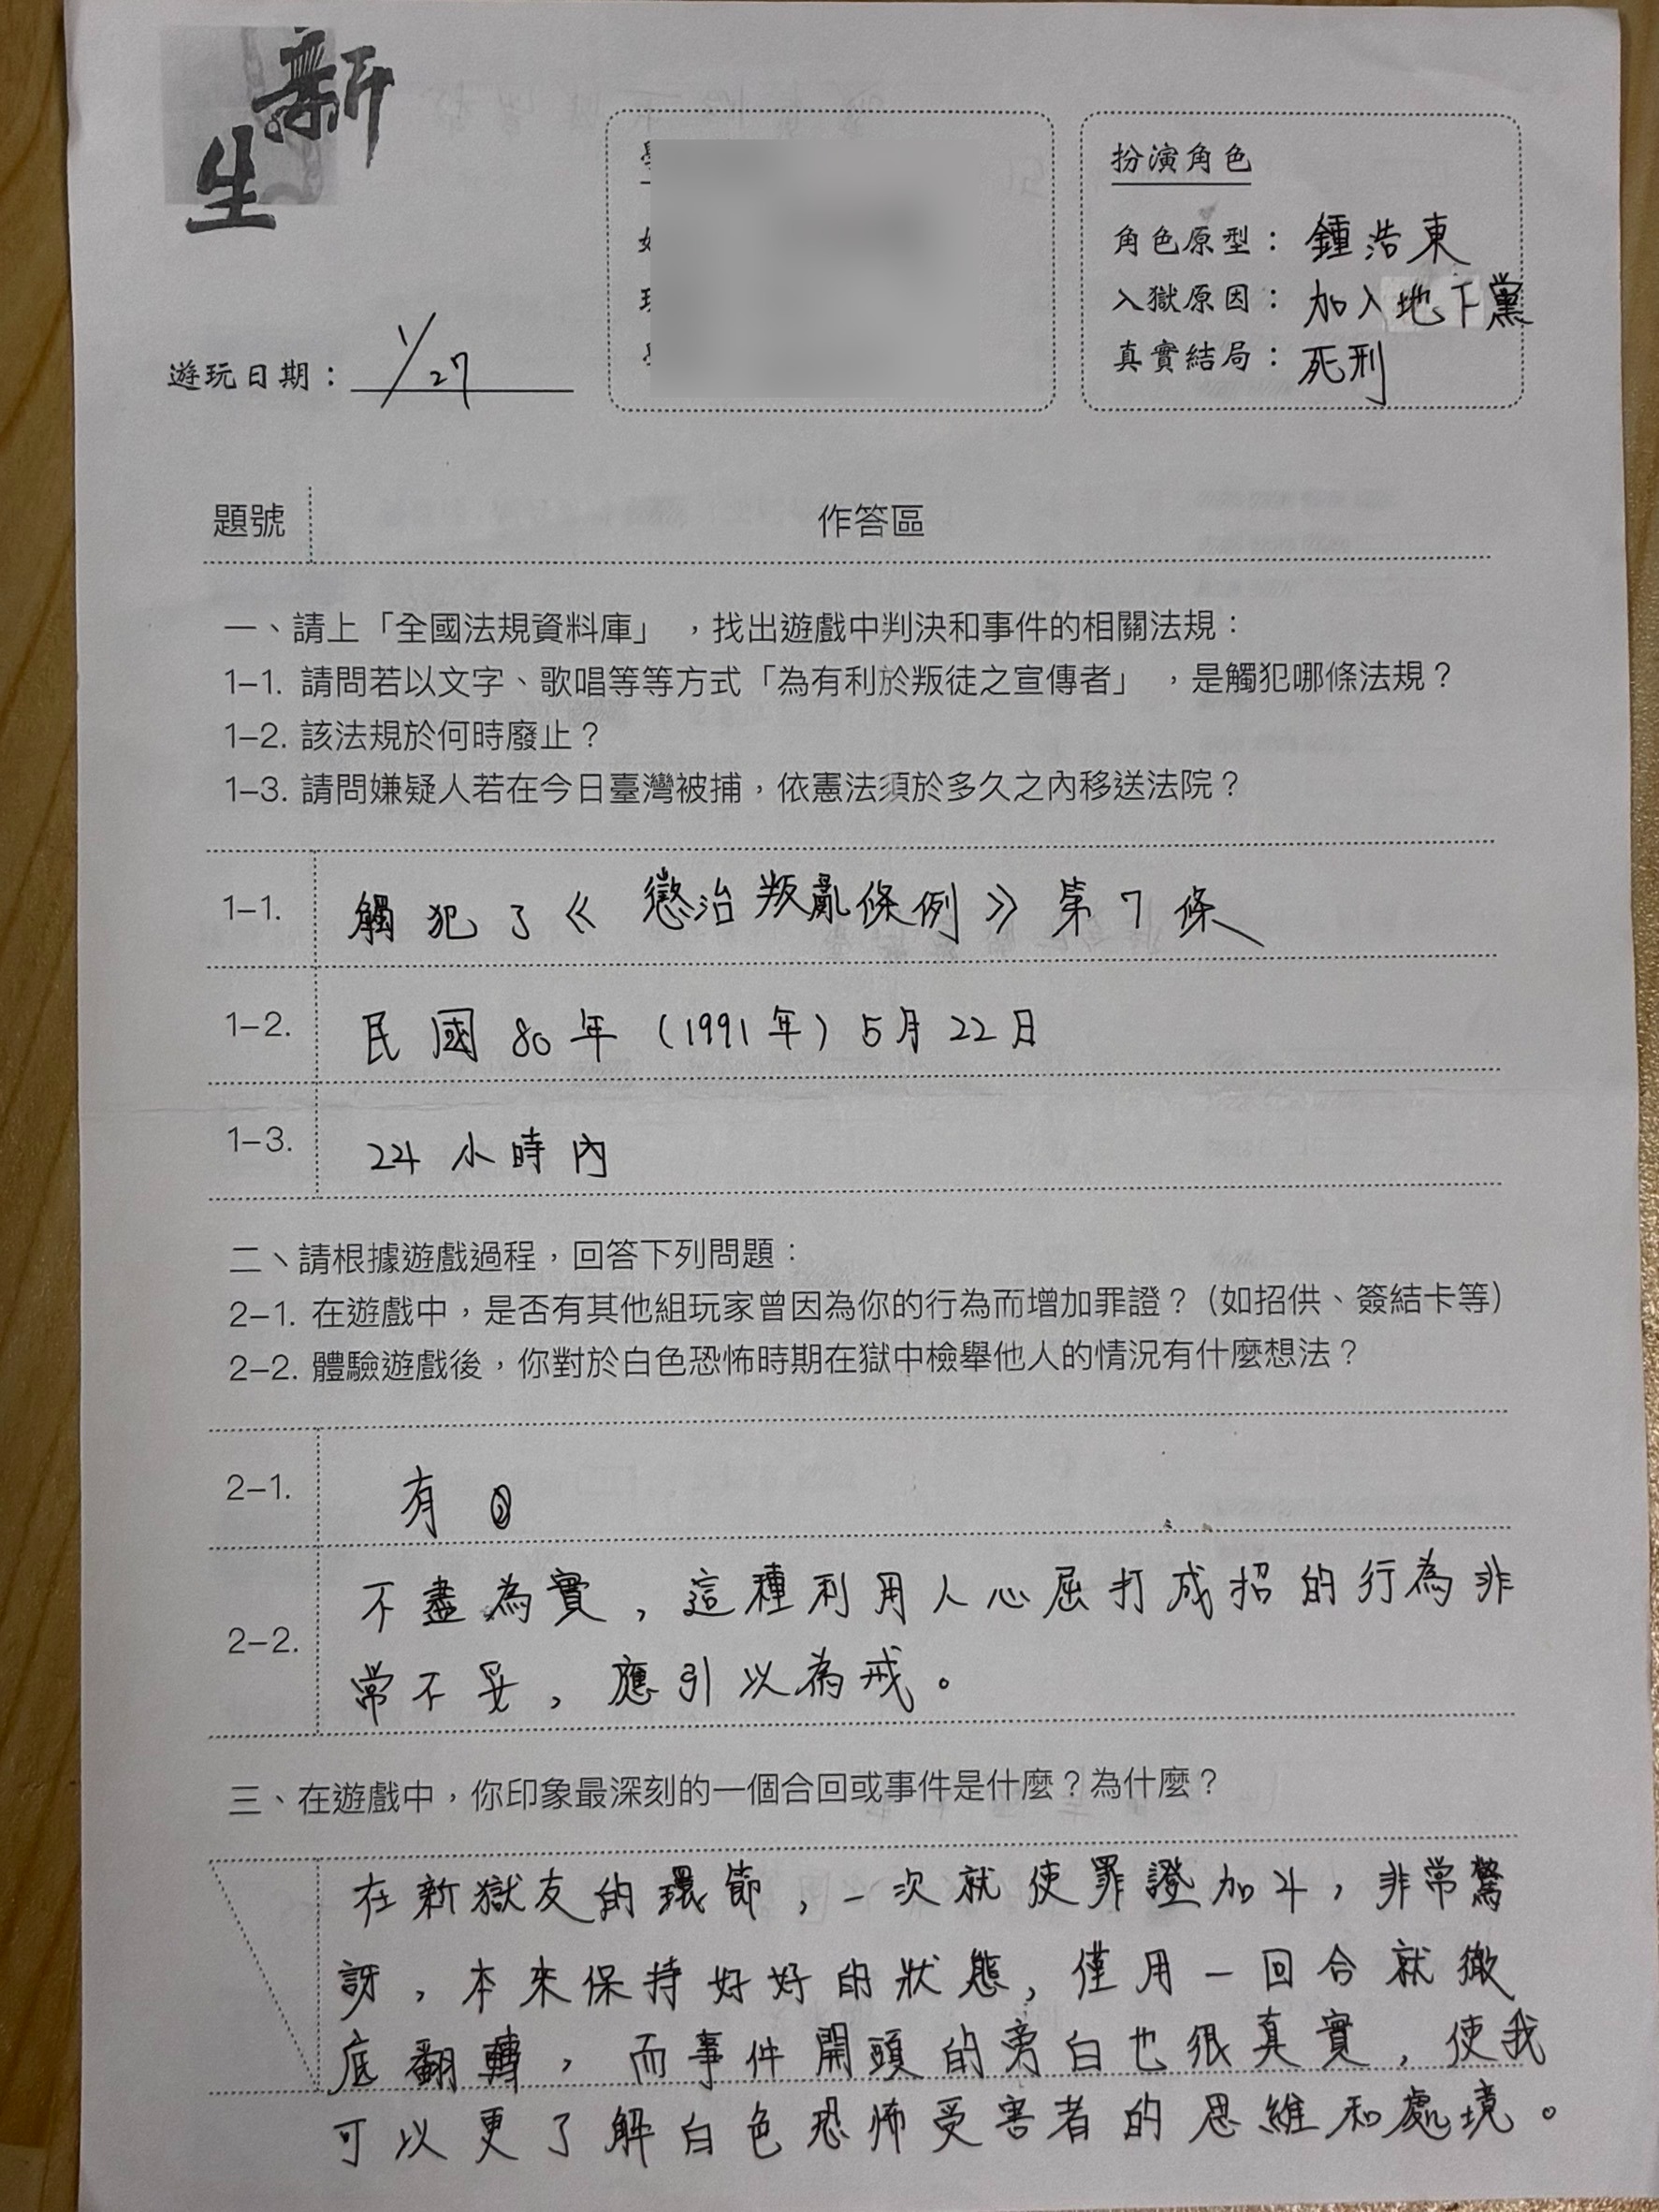 新生
扮演角色
角色原型：鍾浩東
入獄原因：加入地下黨
真實結局：死刑
遊玩日期：1/27
題號 作答區
一、請上「全國法規資料庫」，找出遊戲中判決和事件的相關法規：
1-1. 請問若以文字、歌唱等等方式「為有利於叛徒之宣傳者」，是觸犯哪條法規？
1-2. 該法規於何時廢止？
1-3. 請問嫌疑人若在今日臺灣被捕，依憲法須於多久之內移送法院？
1-1. 觸犯了《懲治叛亂條例》第7條
1-2. 民國80年（1991年）5月22日
1-3. 24小時內
二、請根據遊戲過程，回答下列問題：
2-1. 在遊戲中，是否有其他組玩家曾因為你的行為而增加罪證？（如招供、簽結卡等）
2-2. 體驗遊戲後，你對於白色恐怖時期在獄中檢舉他人的情況有什麼想法？
2-1. 有
2-2. 不盡為實，這種利用人心屈打成招的行為非
常不妥，應引以為戒。
三、在遊戲中，你印象最深刻的一個合回或事件是什麼？為什麼？
在新獄友的環節，一次就使罪證加4，非常驚
訝，本來保持好好的狀態，僅用一回合就徹
底翻轉，而事件開頭的旁白也很真實，使我
可以更了解白色恐怖受害者的思維和處境。